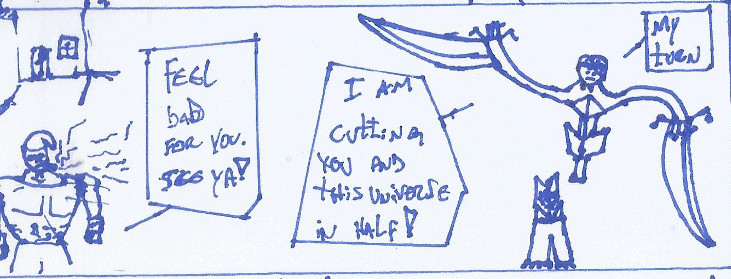 FEEL
bAD
FOR YOU.
SEE YA!
I AM
CUttING
YOU AND
tHIS UNIVERSE
IN HALF!
MY
tURN